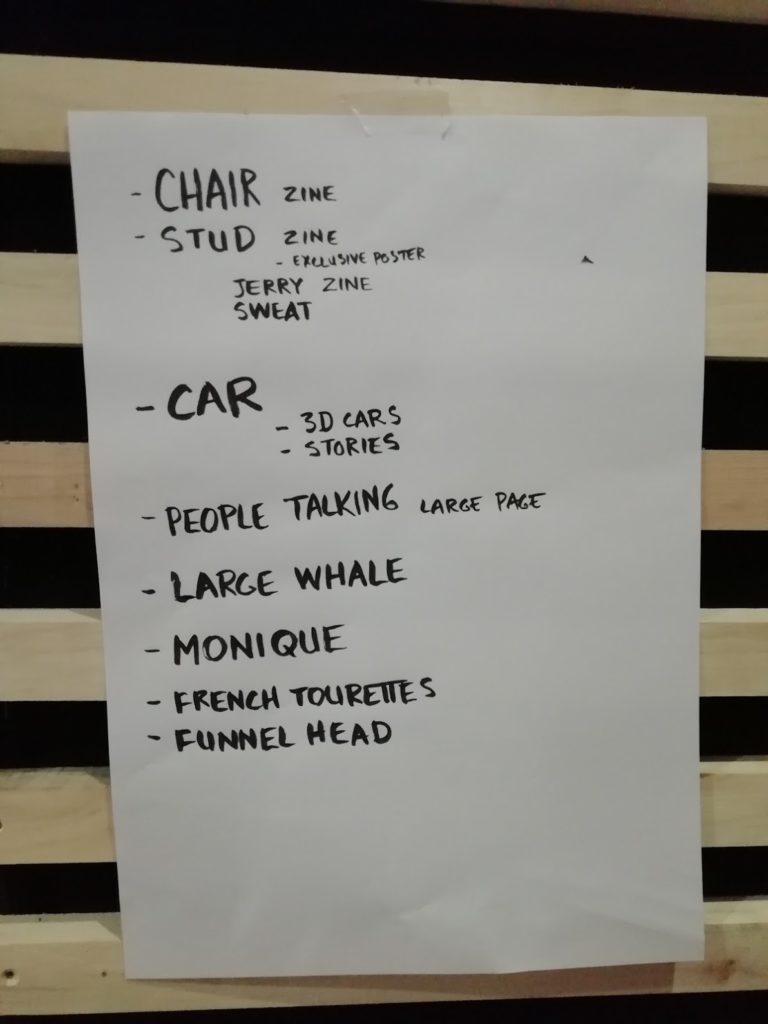 - CHAIR ZINE
- STUD ZINE
- EXCLUSIVE POSTER
JERRY ZINE
SWEAT
- CAR
- 3D CARS
- STORIES
- PEOPLE TALKING LARGE PAGE
- LARGE WHALE
- MONIQUE
- FRENCH TOURETTES
- FUNNEL HEAD